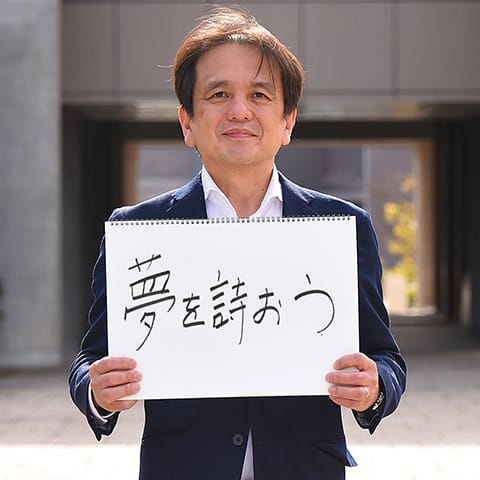 夢を詩おう